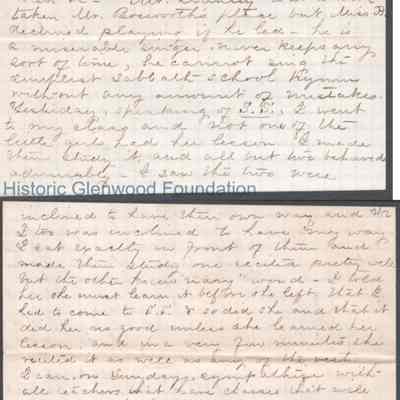 taken Mr. Bosworth's place but, Miss H.
declined playing if he led - he is
a miserable singer, never keeps any
sort of time, he cannot sing the
simplest Sabbath school hymn
without any amount of mistakes.
Yesterday, speaking of S.S., I went
to my class and not one of the
little girls had her lesson I made
them study it and all but two behaved
admirably - I saw the two were
Historic Glenwood Foundation
inclined to have their own way and
I too was inclined to have my way
I sat exactly in front of them and
made them study one recited pretty well
but the other knew "nary" word - I told
her she must learn it before she left, that I
had to come to S.S. & so did she and that it
did her no good unless she learned her
lesson and in a very few minutes she
recited it as well as any of the rest.
I can, on Sunday, sympathize with
all teachers that have classes that will